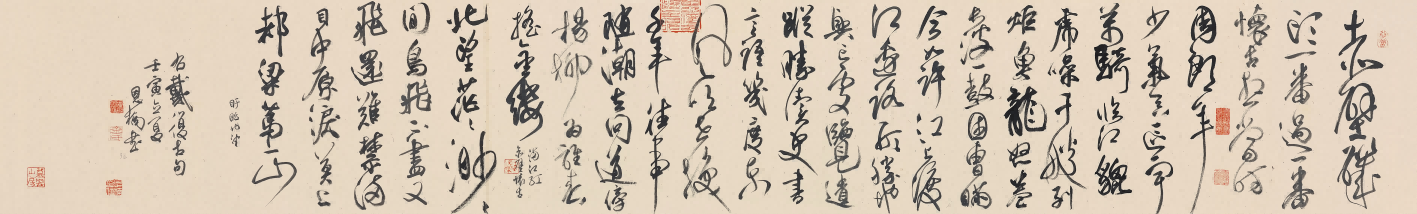 赤壁磯
頭一番過一番
懷古想當時
周郎年
少氣吞區宇
萬騎臨江貔
虎噪千艘列
炬魚龍怒卷
長波一鼓困曹瞞
今如許江上渡
江邊路形勝地
興亡處覽遺
蹤勝讀史書
言語幾度東
風吹世換
千年往事
隨潮去問道傍
楊柳為誰春
搖金縷
滿江紅
赤壁懷古
北望茫茫渺渺
間鳥飛不盡又
飛還難禁滿
目中原淚莫上
都梁第一山
盱眙北望
右戴復古句
壬寅立夏